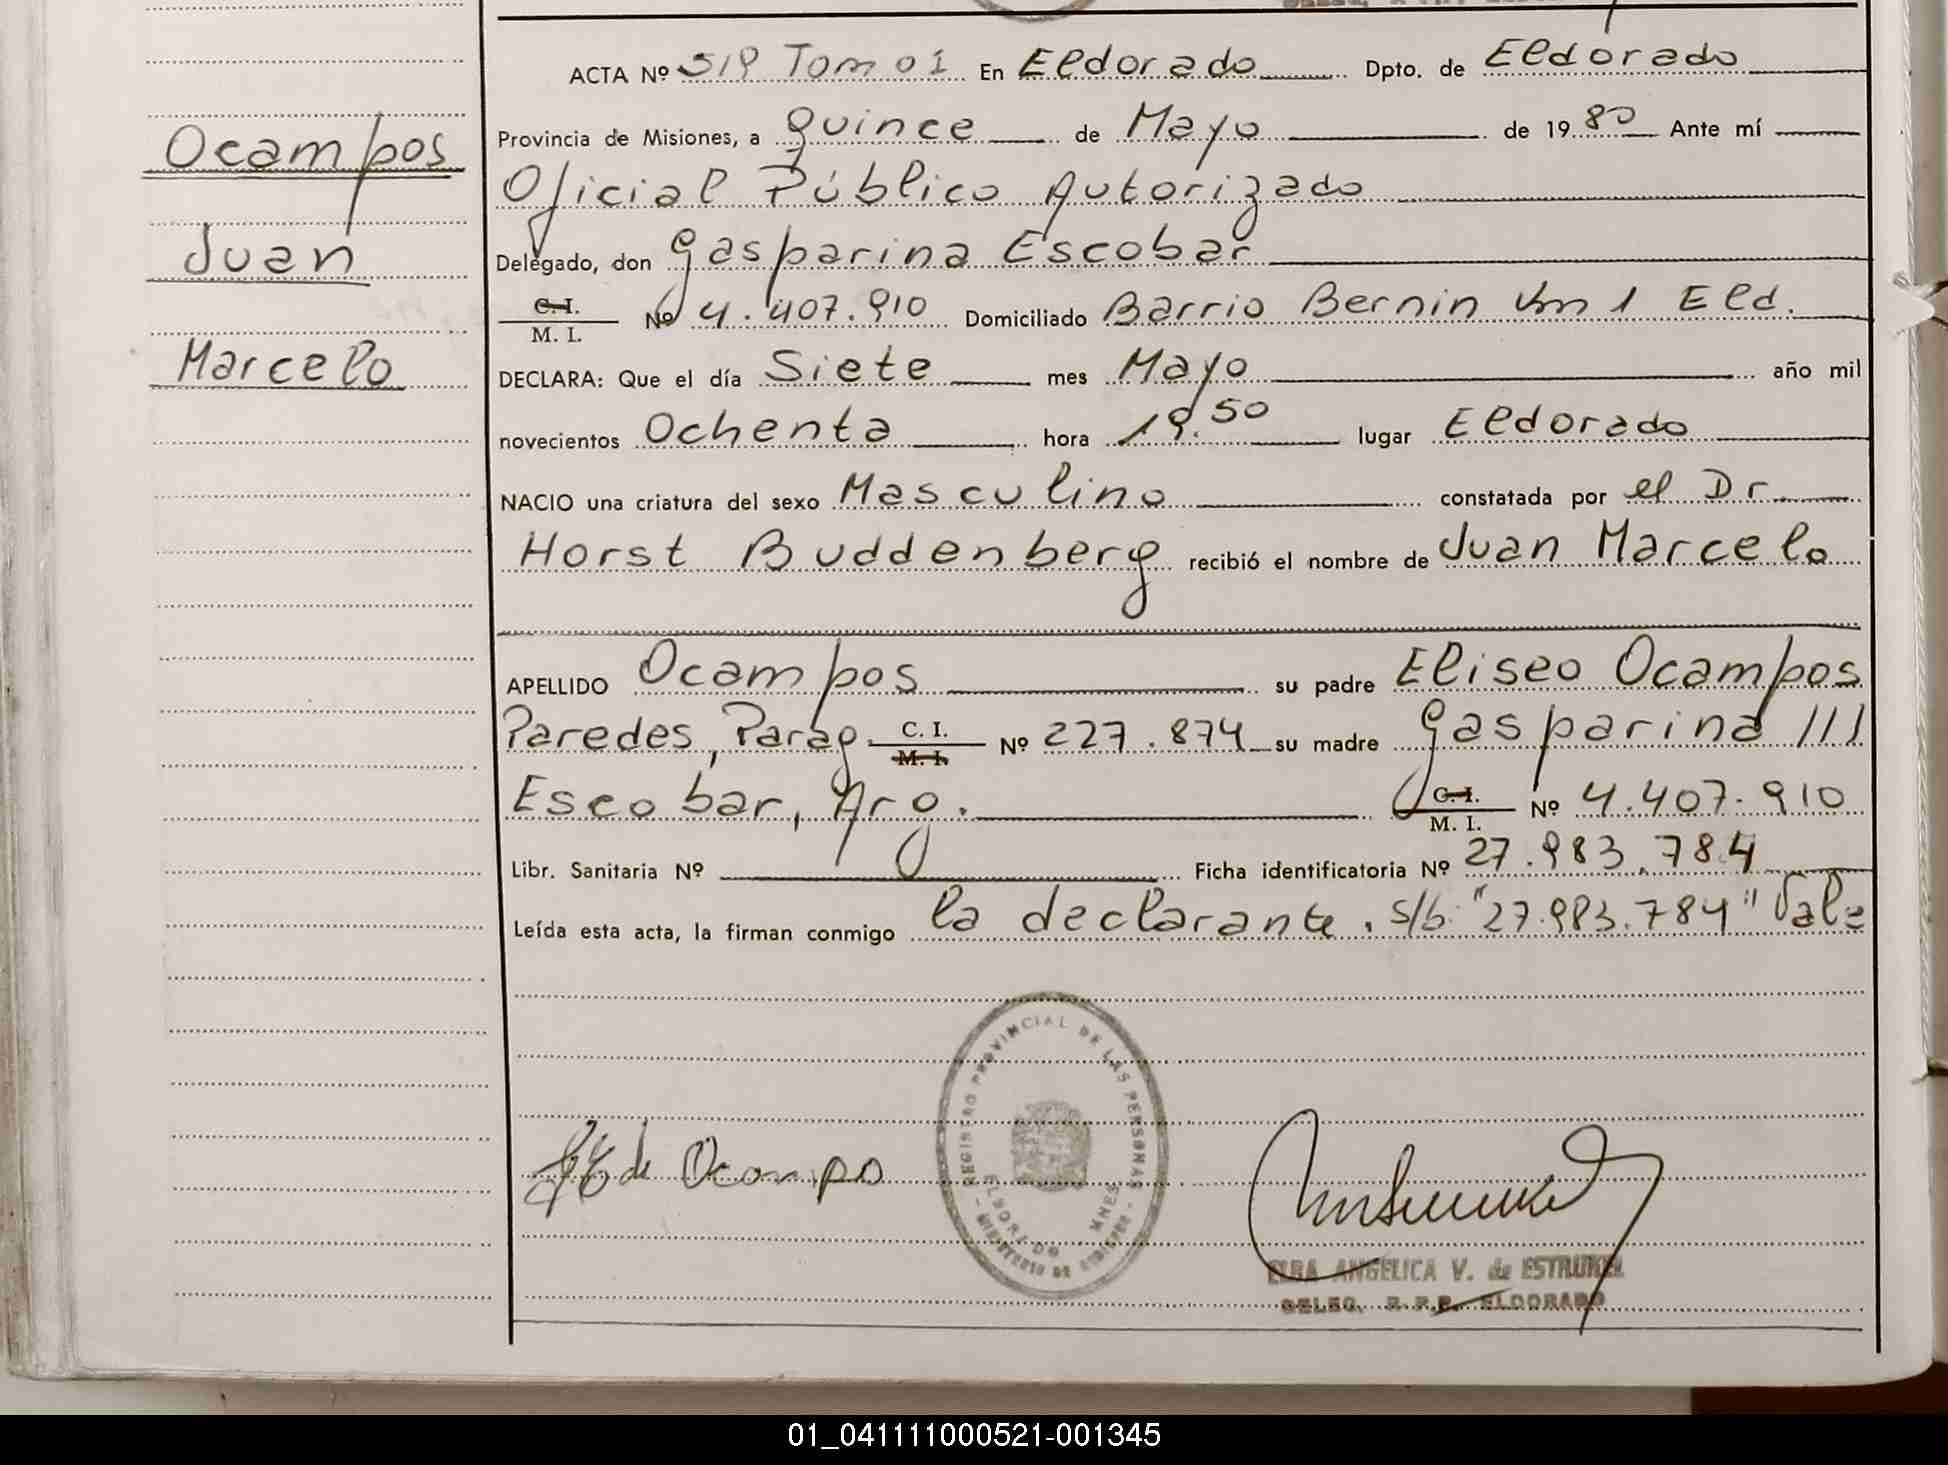 ACTA Nº 519 Tomo 1 En Eldorado Dpto. de Eldorado
Provincia de Misiones, a quince de Mayo de 1980 Ante mí
Oficial Público Autorizado
Delegado, don Gasparina Escobar
C. I.
M. I. Nº 4.407.910 Domiciliado Barrio Bernin Km 1 Eld.
DECLARA: Que el día Siete mes Mayo año mil
novecientos Ochenta hora 19.50 lugar Eldorado
NACIO una criatura del sexo Masculino constatada por el Dr
Horst Buddenberg recibió el nombre de Juan Marcelo
APELLIDO Ocampos su padre Eliseo Ocampos
Paredes, Parag. C. I. M. I. Nº 227.874 su madre Gasparina
Escobar, Arg. C. I. M. I. Nº 4.407.910
Libr. Sanitaria Nº Ficha identificatoria Nº 27.983.784
Leída esta acta, la firman conmigo la declarante. s/b "27.983.784" Vale
Ocampos
Juan
Marcelo
de Ocampo
REGISTRO PROVINCIAL DE LAS PERSONAS
ELDORADO MNES
MINISTERIO DE GOBIERNO
ELBA ANGELICA V. de ESTRUKEL
DELEG. R. P. P. ELDORADO
01_041111000521-001345